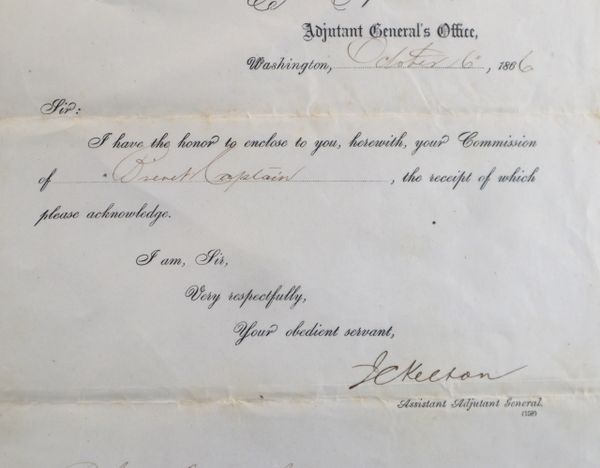 Adjutant General's Office,
Washington, October 16, 1866
Sir:
I have the honor to enclose to you, herewith, your Commission
of Brevet Captain, the receipt of which
please acknowledge.
I am, Sir,
Very respectfully,
Your obedient servant,
JCKelton
Assistant Adjutant General.